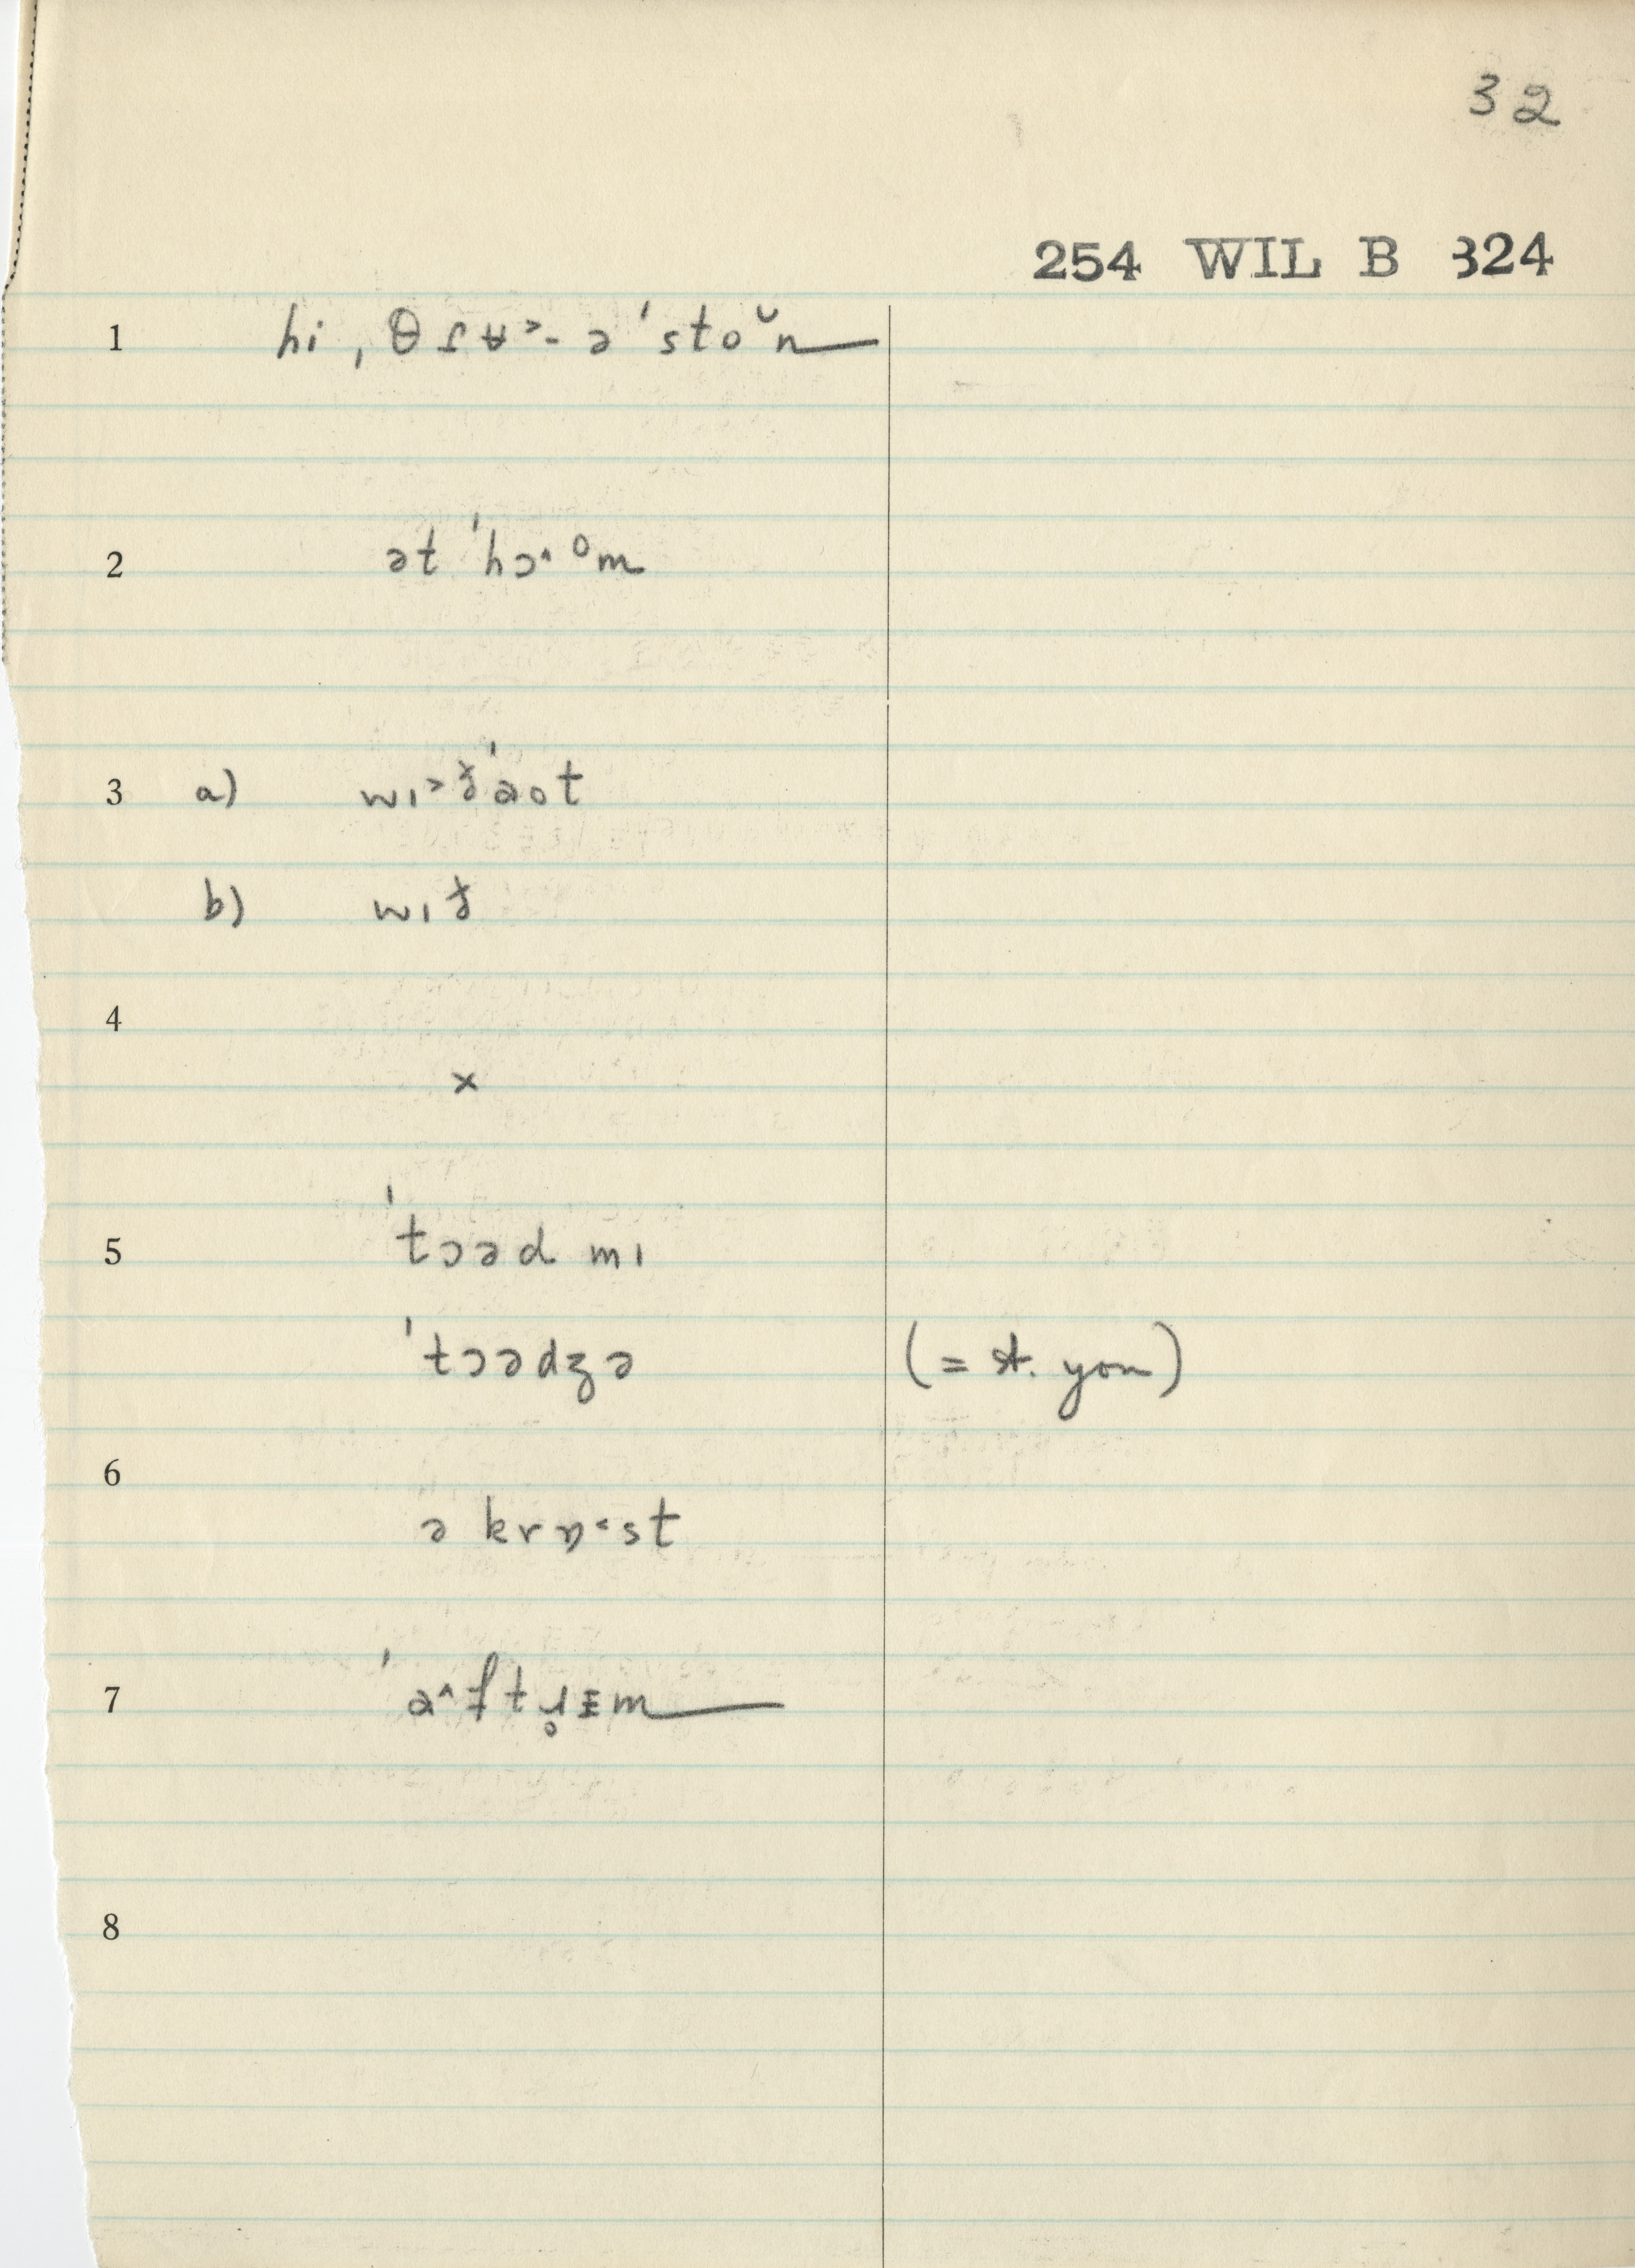 32
254 WIL B 324
1 hi, θɾʉ˃- ə ˈstoŭn
2 ət ˈhɔ˄ᵒm
3 a) wɪ˃ɟˈaot
b) wɪɟ
4
×
5 ˈtɔəd mɪ
ˈtɔədʒə (= st. you)
6
ə krɒ˂st
7 ˈa˄ftɹ̥ɪm
8